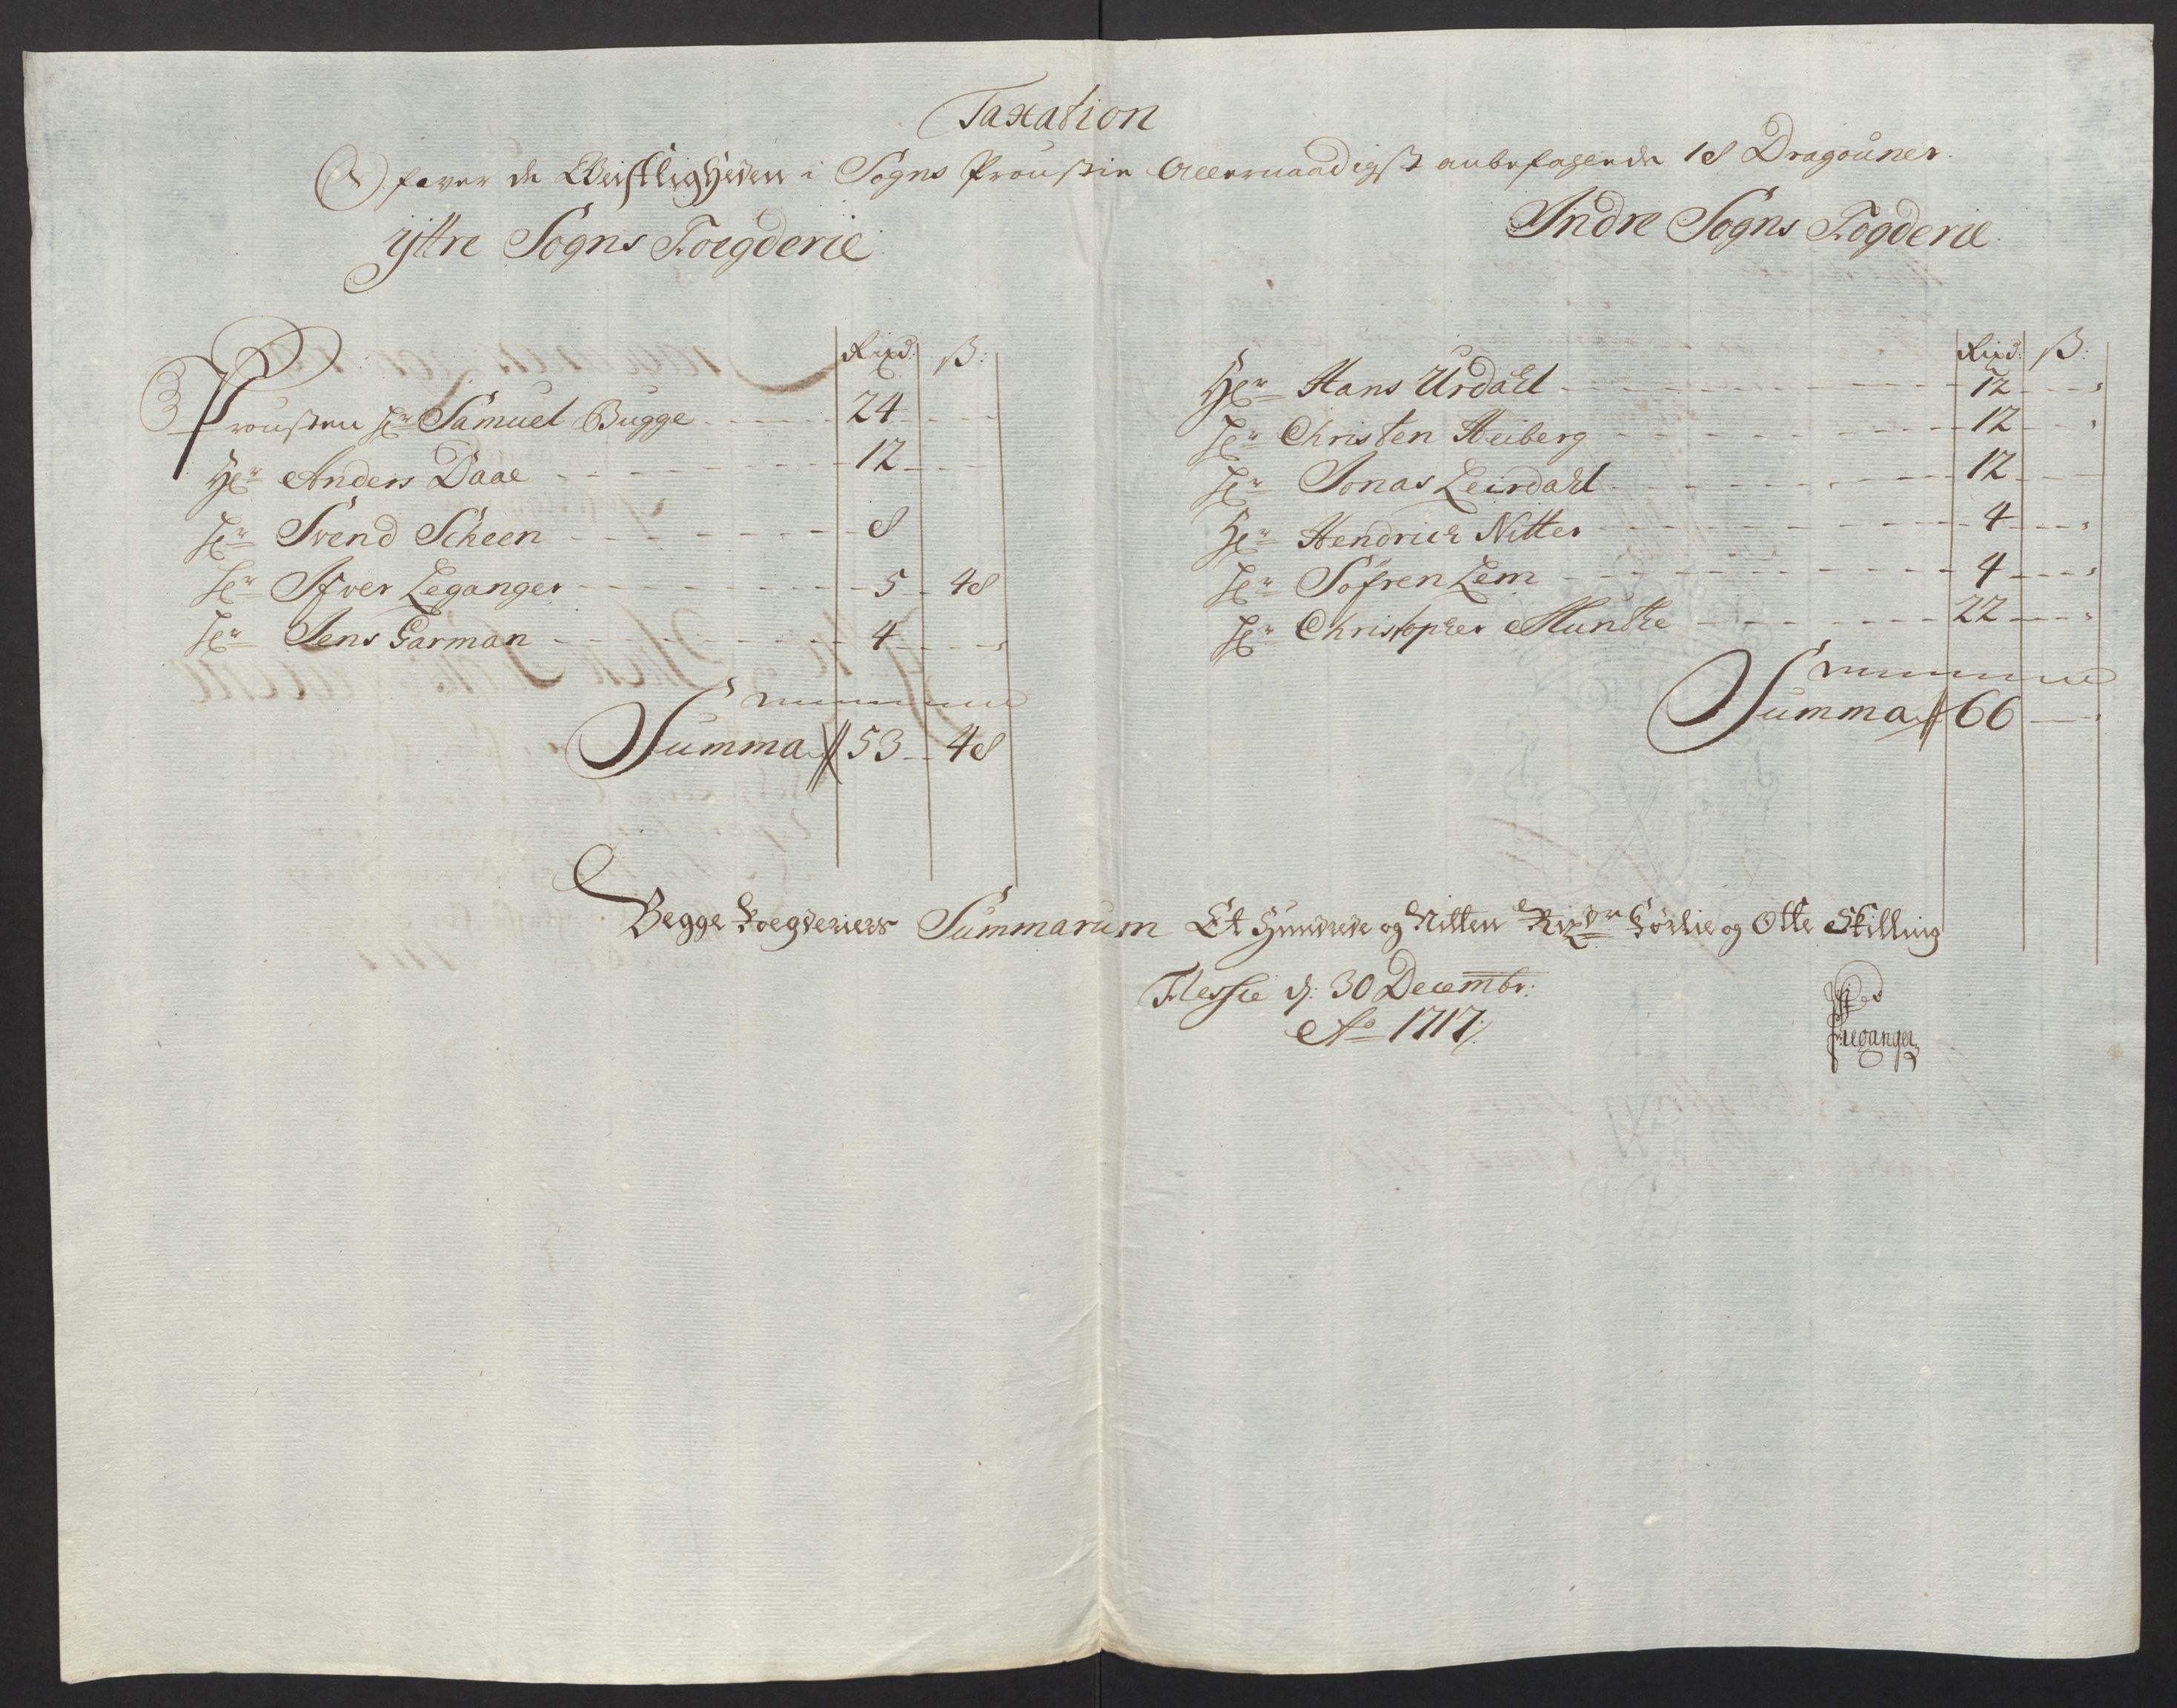 Taxation
Ofver de Geistligheden i Sogns Proustie Allernaadigst anbefahlede 18 Dragouner.
ÿttre Sogns Foegderie
Rixd: ß:
Prousten Hr Samuel Bugge 24
Hr Anders Daae 12
Hr Svend Scheen 8
Hr Ifver Leganger 5 48
Hr Jens Garman 4
Summa 53 48
Indre Sogns Fogderie
Rixd: ß:
Hr Hans Urdahl 12
Hr Christen Heiberg 12
Hr Jonas Leirdahl 12
Hr Hendrich Nitter 4
Hr Söfren Lem 4
Hr Christopher Munthe 22
Summa 66
Begge Foegderiers Summarum Et Hundrede og Nitten Rixdr Förtie og Otte Skilling
Flessie d: 30 Decembr:
Ao 1717:
Leganger